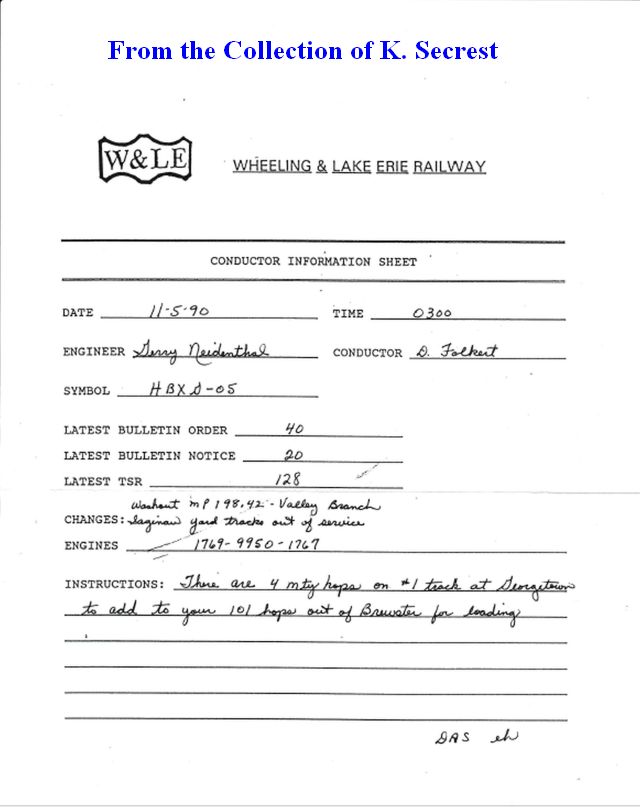 From the Collection of K. Secrest
W&LE
WHEELING & LAKE ERIE RAILWAY
CONDUCTOR INFORMATION SHEET
DATE 11-5-90 TIME 0300
ENGINEER Gerry Neidenthal CONDUCTOR D. Folkert
SYMBOL HBXD-05
LATEST BULLETIN ORDER 40
LATEST BULLETIN NOTICE 20
LATEST TSR 128
Washout MP 198.42 - Valley Branch
CHANGES: Saginaw yard tracks out of service
ENGINES 1769-9950-1767
INSTRUCTIONS: There are 4 mty hops on #1 track at Georgetown
to add to your 101 hops out of Brewster for loading
DAS eh